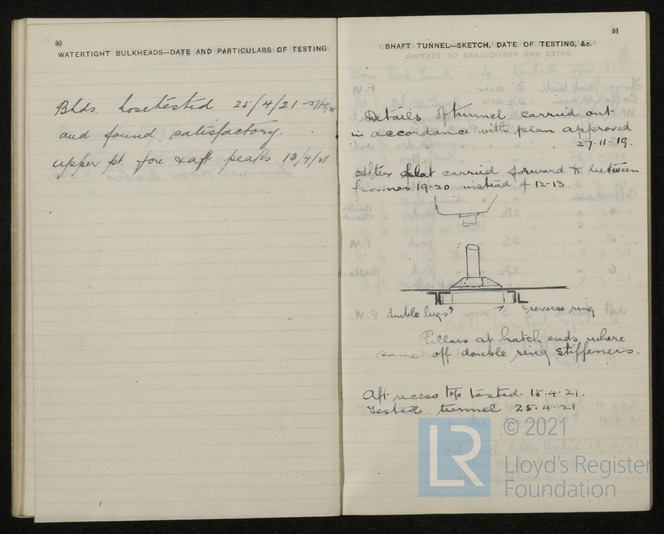 50
WATERTIGHT BULKHEADS—DATE AND PARTICULARS OF TESTING
Bhds hosetested 25/4/21
and found satisfactory.
upper pt fore & aft peaks 18/4/21
51
SHAFT TUNNEL—SKETCH, DATE OF TESTING, &c.
Details of tunnel carried out
in accordance with plan approved
27.11.19.
After flat carried forward to between
frames 19-20 instead of 12-13.
double lugs
reverse ring
Pillars at hatch ends where
same off double ring stiffeners.
Aft recess top tested 18.4.21.
Tested tunnel 25.4.21
LR
© 2021
Lloyd's Register
Foundation